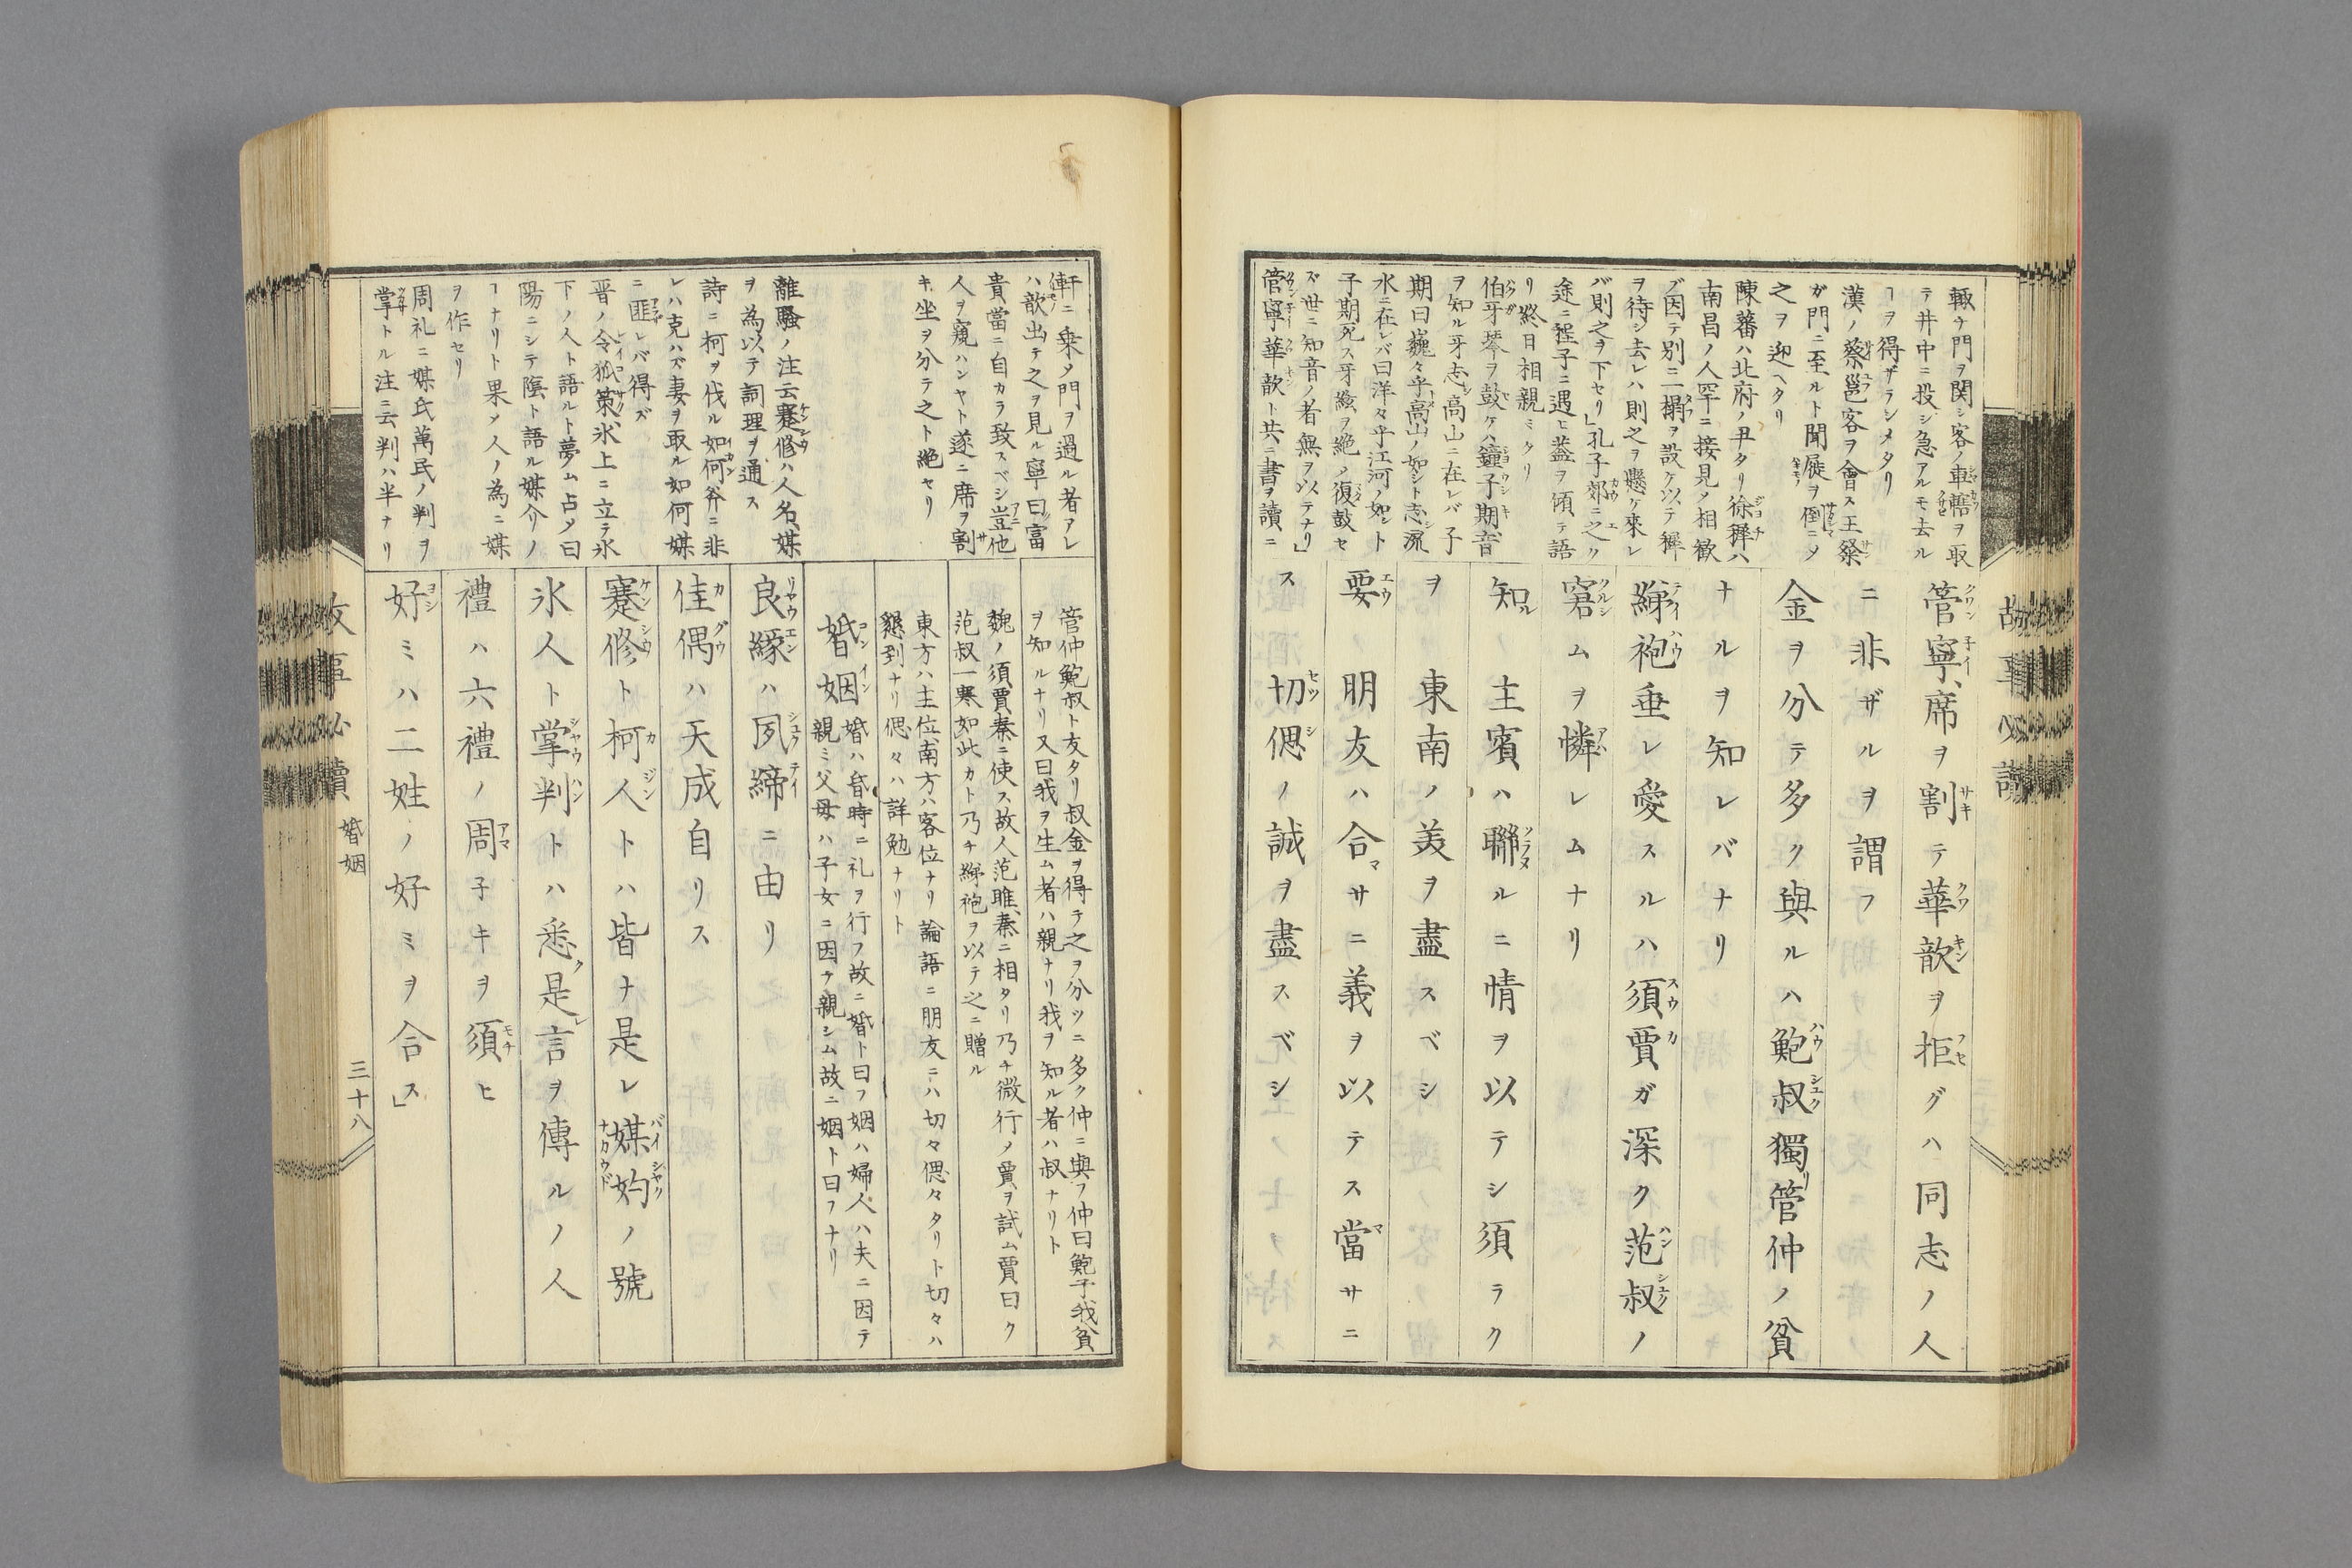 輙チ門ヲ関シ客ノ車轄ヲ取
テ井中ニ投シ急アルモ去ル
ヿヲ得ザラシメタリ
漢ノ蔡邕客ヲ會ス王粲
ガ門ニ至ルト聞屣ヲ倒ニメ
之ヲ迎ヘタリ
陳蕃ハ北府ノ尹タリ徐穉ハ
南昌ノ人罕ニ接見メ相歓
ブ因テ別ニ一榻ヲ設ケ以テ穉
ヲ待シ去レハ則之ヲ懸ケ來レ
バ則之ヲ下セリ」孔子郯ニ之ク
途ニ程子ニ遇ヒ葢ヲ傾テ語
リ終日相親ミタリ
伯牙琴ヲ鼓ケハ鐘子期音
ヲ知ル牙志高山ニ在レバ子
期曰巍々乎高山ノ如シト志流
水ニ在レバ曰洋々乎江河ノ如シト
子期死ス牙絃ヲ絶ノ復鼓セ
ズ世ニ知音ノ者無ヲ以テナリ」
管寧華歆ト共ニ書ヲ讀ニ
管寧、席ヲ割テ華歆ヲ拒グハ同志ノ人
ニ非ザルヲ謂フ
金ヲ分テ多ク與ルハ鮑叔獨リ管仲ノ貧
ナルヲ知レバナリ
綈袍垂レ愛スルハ須賈ガ深ク范叔ノ
窘ムヲ憐レムナリ
知ル主賓ハ聯ルニ情ヲ以テシ須ラク
ヲ東南ノ美ヲ盡スベシ
要ノ朋友ハ合サニ義ヲ以テス當サニ
ス切偲ノ誠ヲ盡スベシ
故事必讀
軒ニ乗メ門ヲ過ル者アレ
ハ歆出テ之ヲ見ル寧曰富
貴當ニ自カラ致スベシ豈他
人ヲ窺ハンヤト遂ニ席ヲ割
キ坐ヲ分テ之ト絶セリ
離騒ノ注云蹇修ハ人名、媒
ヲ為以テ詞理ヲ通ス
詩ニ柯ヲ伐ル如何斧ニ非
レハ克ハズ妻ヲ取ル如何媒
ニ匪レバ得ズ
晋ノ令狐策、氷上ニ立テ氷
下ノ人ト語ルト夢ム占メ曰
陽ニシテ陰ト語ル媒介ノ
ヿナリト果メ人ノ為ニ媒
ヲ作セリ
周礼ニ媒氏萬民ノ判ヲ
掌トル注ニ云判ハ半ナリ
管仲鮑叔ト友タリ叔金ヲ得テ之ヲ分ツニ多ク仲ニ與フ仲曰鮑子我貧
ヲ知ルナリ又曰我ヲ生ム者ハ親ナリ我ヲ知ル者ハ叔ナリト
魏ノ須賈秦ニ使ス故人范雎、秦ニ相タリ乃チ微行ノ賈ヲ試ム賈曰ク
范叔一寒如此カト乃チ綈袍ヲ以テ之ニ贈ル
東方ハ主位南方ハ客位ナリ 論語ニ朋友ニハ切々偲々タリト切々ハ
懇到ナリ偲々ハ詳勉ナリト
婚姻
婚ハ昏時ニ礼ヲ行フ故ニ婚ト曰フ姻ハ婦人ハ夫ニ因テ
親ミ父母ハ子女ニ因テ親シム故ニ姻ト曰フナリ
良緣ハ夙締ニ由リ
佳偶ハ天成自リス
蹇修ト柯人トハ皆ナ是レ媒妁ノ號
氷人ト掌判トハ悉ク是レ言ヲ傳ルノ人
禮ハ六禮ノ周子キヲ須ヒ
好ミハ二姓ノ好ミヲ合ス」
故事必讀
婚姻
三十八